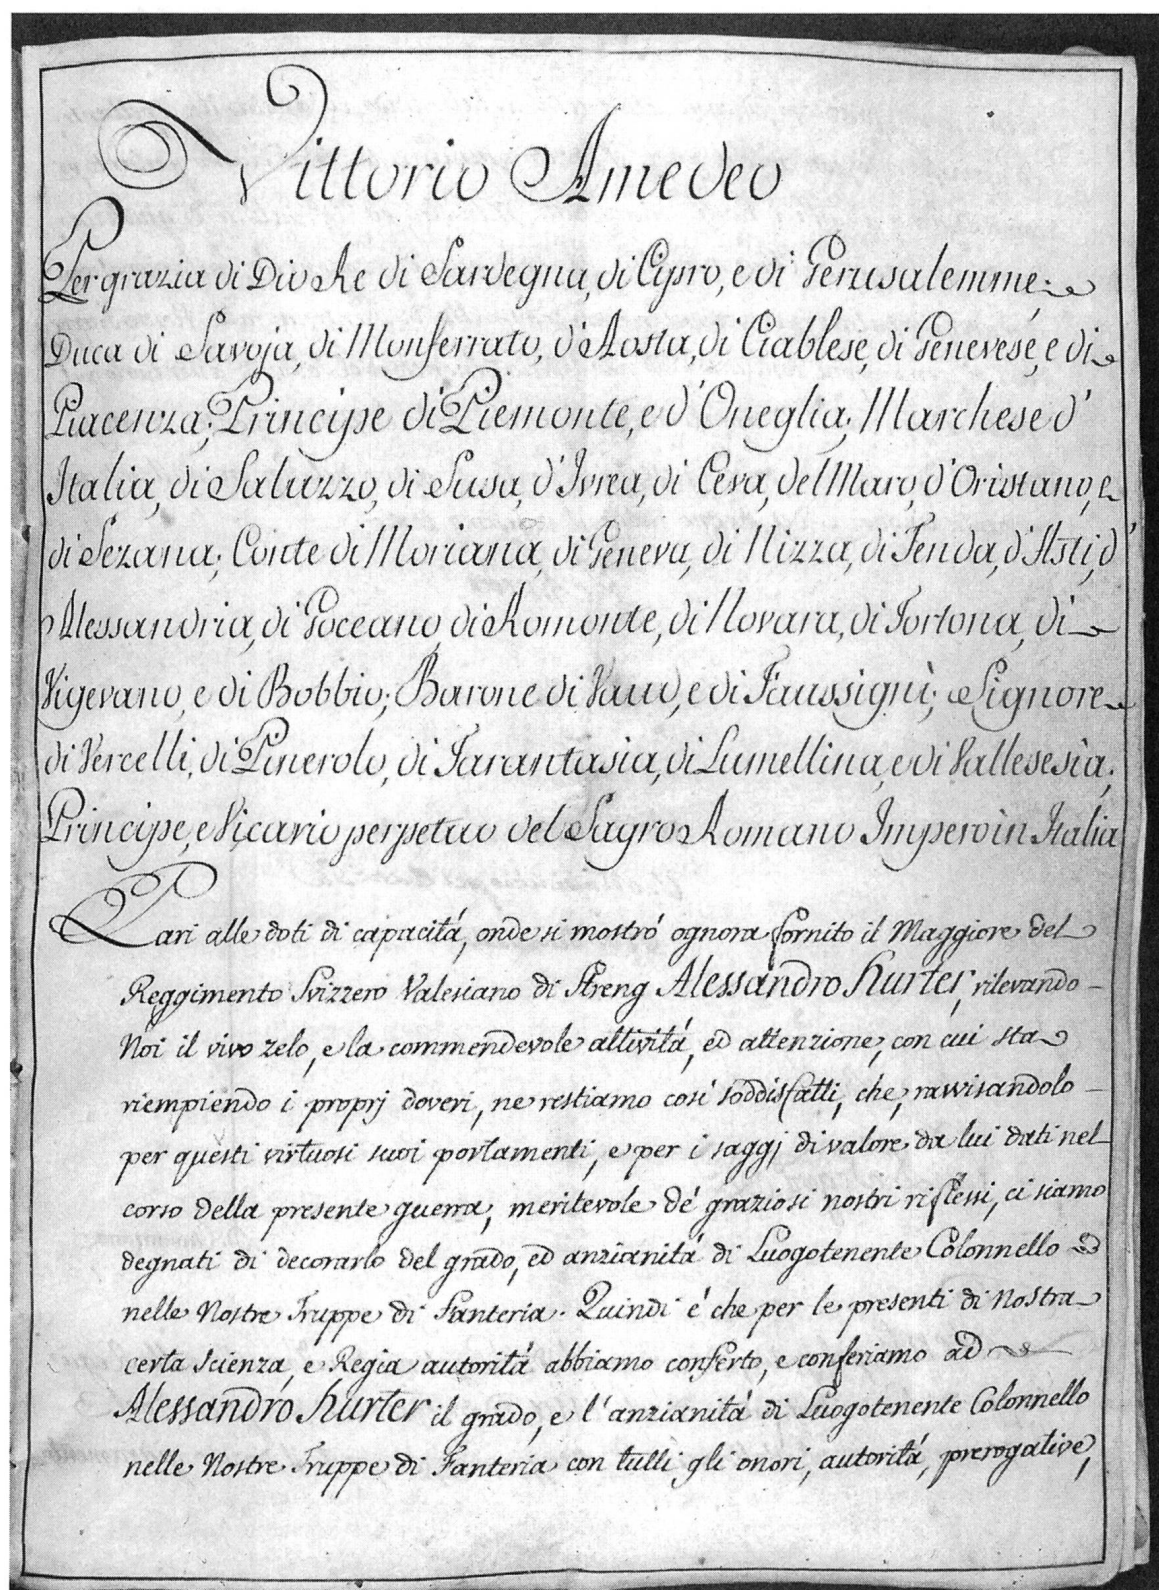 Vittorio Amedeo
Per grazia di Dio Re di Sardegna, di Cipro, e di Gerusalemme;
Duca di Savoja, di Monferrato, d'Aosta, di Ciablese, di Genevese, e di
Piacenza; Principe di Piemonte, e d'Oneglia; Marchese d'
Italia, di Saluzzo, di Susa, d'Ivrea, di Ceva, del Maro, d'Oristano, e
di Sezana; Conte di Moriana, di Geneva, di Nizza, di Tenda, d'Asti, d'
Alessandria, di Goceano, di Romonte, di Novara, di Tortona, di
Vigevano, e di Bobbio; Barone di Vaud, e di Faussignì; Signore
di Vercelli, di Pinerolo, di Tarantasia, di Lumellina, e di Vallesesia;
Principe, e Vicario perpetuo del Sagro Romano Impero in Italia
Pari alle doti di capacitá, onde si mostró ognora fornito il Maggiore del
Reggimento Svizzero Valesiano di Streng Alessandro Kurter, rilevando
Noi il vivo zelo, e la commendevole attivitá, ed attenzione, con cui sta
riempiendo i proprj doveri, ne restiamo cosí soddisfatti, che, ravvisandolo
per questi virtuosi suoi portamenti, e per i saggj di valore da lui dati nel
corso della presente guerra, meritevole de' graziosi nostri riflessi, ci siamo
degnati di decorarlo del grado, ed anzianitá di Luogotenente Colonnello
nelle Nostre Truppe di Fanteria. Quindi é che per le presenti di Nostra
certa scienza, e Regia autoritá abbiamo conferto, e conferiamo ad
Alessandro Kurter il grado, e l'anzianitá di Luogotenente Colonnello
nelle Nostre Truppe di Fanteria con tutti gli onori, autoritá, prerogative,